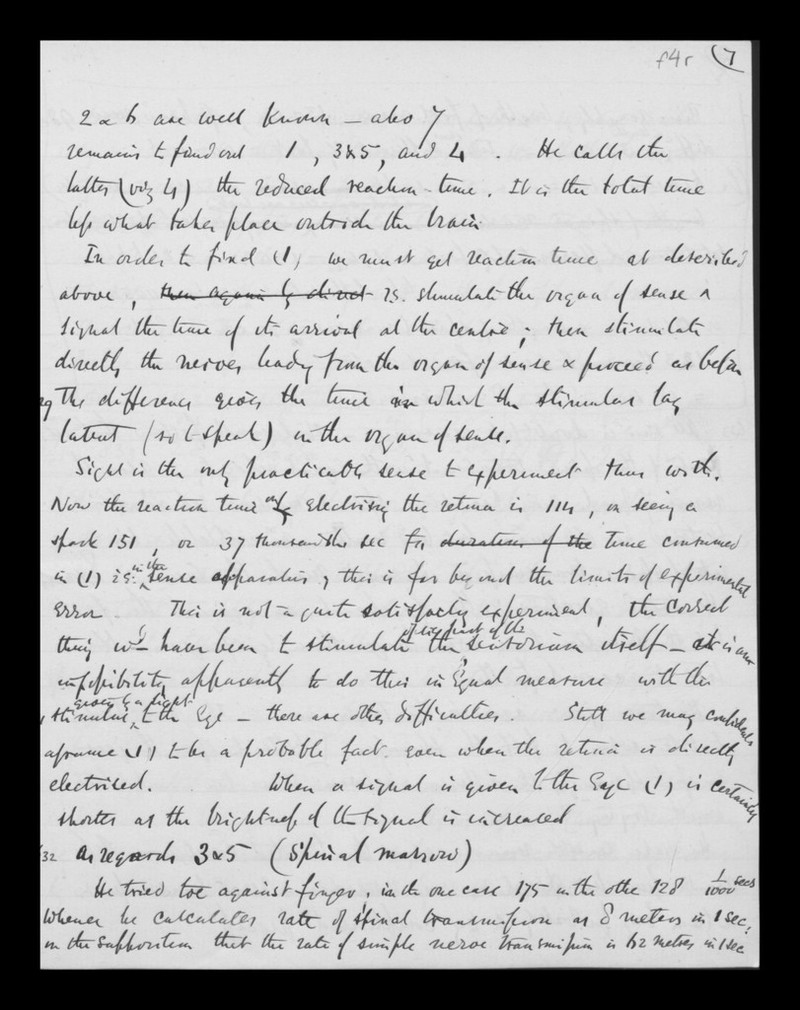 f4r (7
2 & 6 are well known – also 7
remains to find out 1, 3&5, and 4. He calls the
latter (viz 4) the reduced reaction-time. It is the total time
less what takes place outside the brain
In order to find (1) we must get reaction time as described
above, then again by direct is. stimulate the organ of sense &
signal the time of its arrival at the centre; then stimulate
directly the nerves leading from the organ of sense & proceed as before
The difference gives the time in which the stimulus lay
latent (so to speak) in the organ of sense.
Sight is the only practicable sense to experiment thus with.
Now the reaction time on electrising the retina is 114, on seeing a
spark 151, or 37 thousandths sec for duration of the time consumed
in (1) i.e. in the sense apparatus, this is far beyond the limits of experimental
error. This is not a quite satisfactory experiment, the correct
thing wd have been to stimulate the sensorium itself – it is an
impossibility apparently to do this in equal measure with the
stimulus given by a light to the Eye – there are other difficulties. Still we may confidently
assume (1) to be a probable fact even when the retina is directly
electrised. When a signal is given to the Eye (1) is certainly
shorter as the brightness of the signal is increased
32 As regards 3&5 (Spinal marrow)
He tried toe against finger, in the one case 175 in the other 128 1/1000 secs
Whence he calculates rate of spinal transmission as 8 meters in 1 sec;
on the supposition that the rate of simple nerve transmission is 62 metres in 1 sec